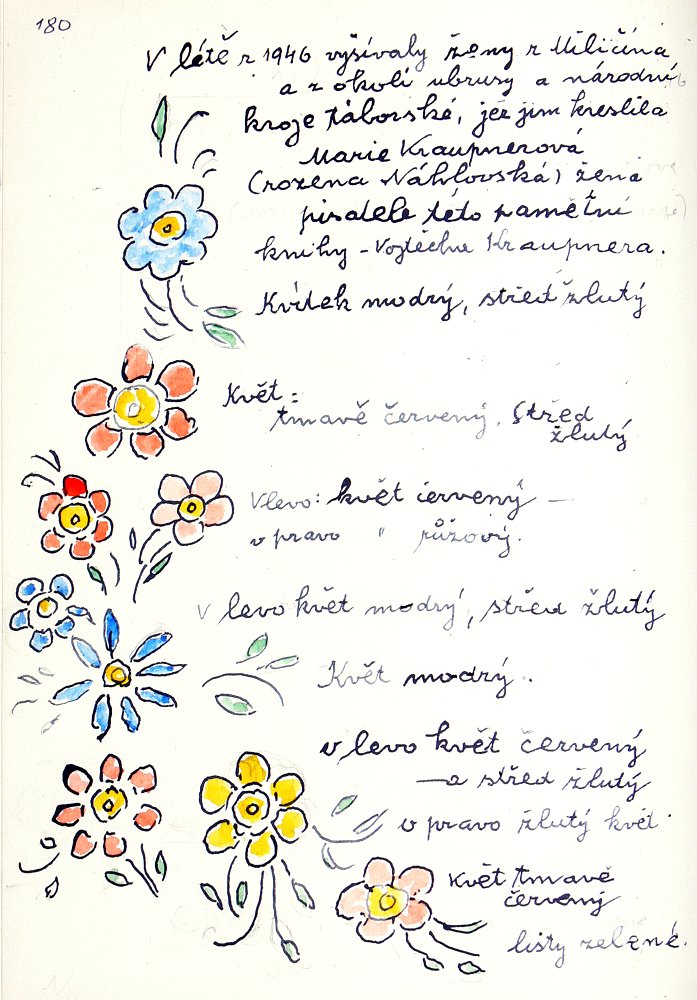 180
V létě r 1946 vyšívaly ženy z Miličína
a z okolí ubrusy a národní
kroje táborské, jež jim kreslila
Marie Kraupnerová
(rozena Náhlovská) žena
pisatele této pamětní
knihy - Vojtěcha Kraupnera.
Kvítek modrý, střed žlutý
Květ:
tmavě červený, Střed
žlutý
Vlevo: květ červený -
v pravo " růžový.
v levo květ modrý, střed žlutý
Květ modrý.
v levo květ červený
- a střed žlutý
v pravo žlutý květ.
květ tmavě
červený
listy zelené.